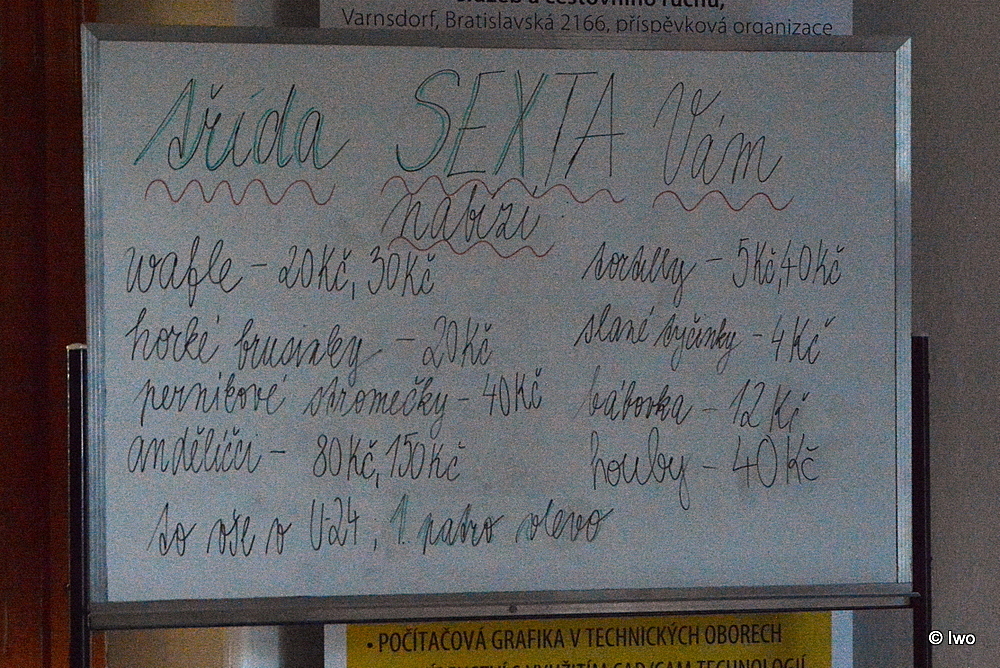 služeb a cestovního ruchu,
Varnsdorf, Bratislavská 2166, příspěvková organizace
třída SEXTA Vám
nabízí:
wafle - 20Kč, 30Kč
horké brusinky - 20Kč
perníkové stromečky - 40Kč
andělíčci - 80Kč, 150Kč
tortilly - 5Kč, 40Kč
slané tyčinky - 4Kč
bábovka - 12 Kč
houby - 40Kč
to vše v U24, 1. patro vlevo
• POČÍTAČOVÁ GRAFIKA V TECHNICKÝCH OBORECH
S VYUŽITÍM CAD/CAM TECHNOLOGIÍ
© Iwo